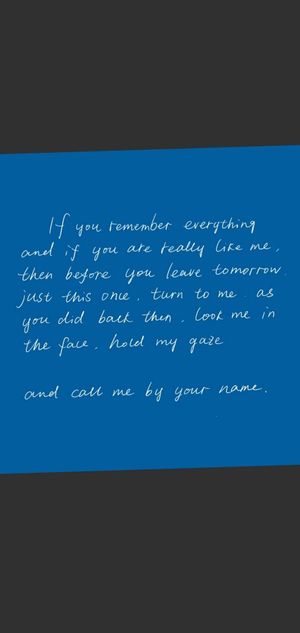 If you remember everything
and if you are really like me,
then before you leave tomorrow.
just this once, turn to me. as
you did back then, look me in
the face, hold my gaze
and call me by your name.